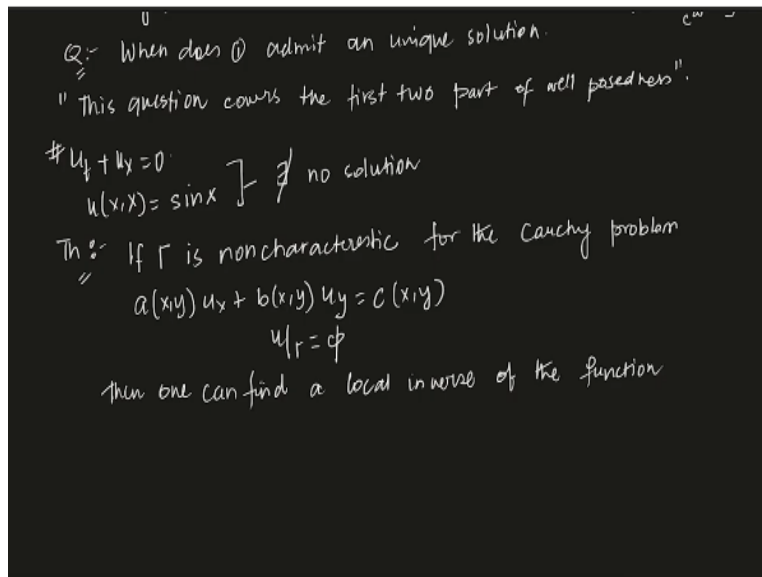 Q:- When does ① admit an unique solution.
"This question covers the first two part of well posedness".
# u_t + u_x = 0
u(x,x) = sin x ] - ∄ no solution
Th:- If Γ is noncharacteristic for the Cauchy problem
a(x,y) u_x + b(x,y) u_y = c(x,y)
u|_Γ = ϕ
then one can find a local inverse of the function